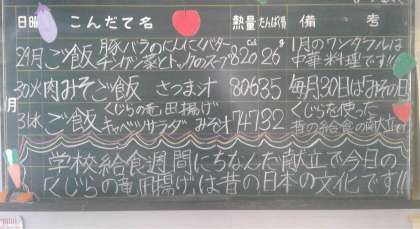 日曜 こんだて名 熱量 たんぱく質 備考
29月 ご飯 豚バラのにんにくバター 820 26 1月のワングラルは
チンゲン菜とトックのスープ 中華料理です!!
30火 肉みそご飯 さつま汁 806 35 毎月30日は「みその日」
31水 ご飯 くじらの竜田揚げ 747 32 くじらを使った
キャベツサラダ みそ汁 昔の給食の献立です
月
学校給食週間にちなんだ献立で今日の
「くじらの竜田揚げ」は昔の日本の文化です!!